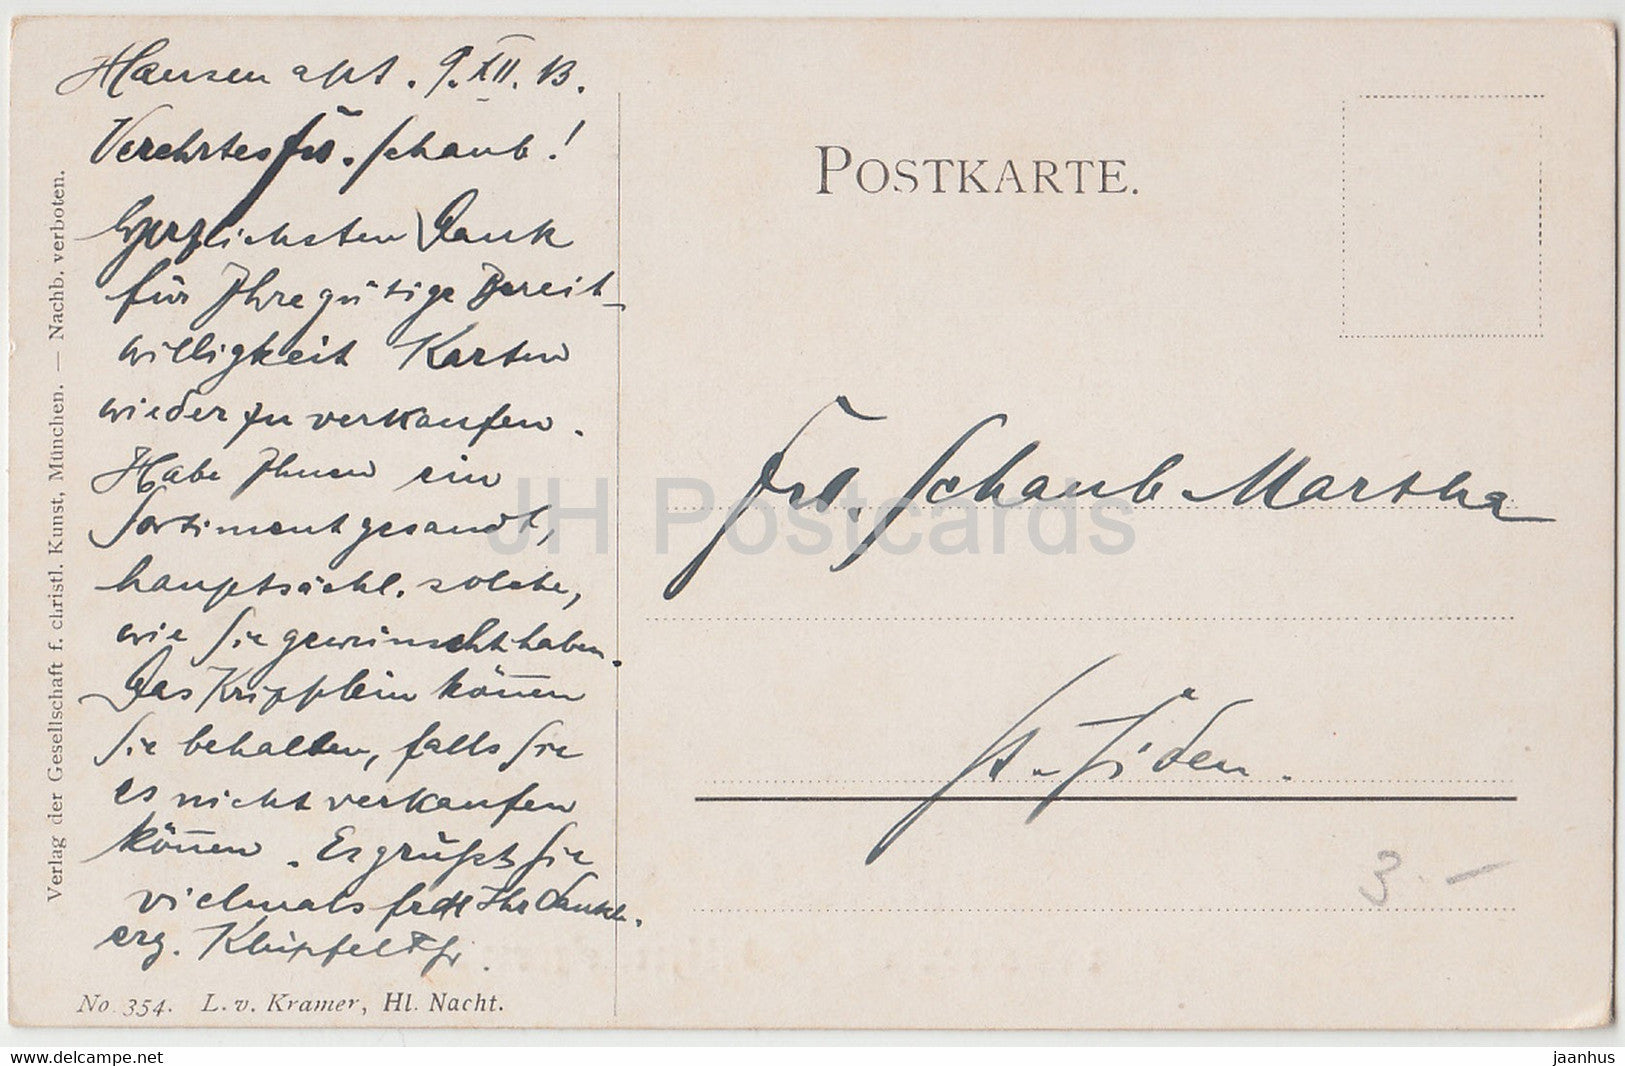 Hausen a/st. 9. XII. 13.
Verehrtes Frl. Schaub!
Herzlichsten Dank
für Ihre gütige Bereit-
willigkeit Karten
wieder zu verkaufen.
Habe Ihnen ein
Sortiment gesandt,
hauptsächl. solche,
wie Sie gewünscht haben.
Das Kripplein können
Sie behalten, falls Sie
es nicht verkaufen
können. Es grüßt Sie
vielmals Ihr dankb.
erg. Klüpfel
No. 354. L. v. Kramer, Hl. Nacht.
Verlag der Gesellschaft f. christl. Kunst, München. — Nachb. verboten.
POSTKARTE.
Frl. Schaub Martha
St. Fiden.
3.-
JH Postcards
www.delcampe.net
jaanhus